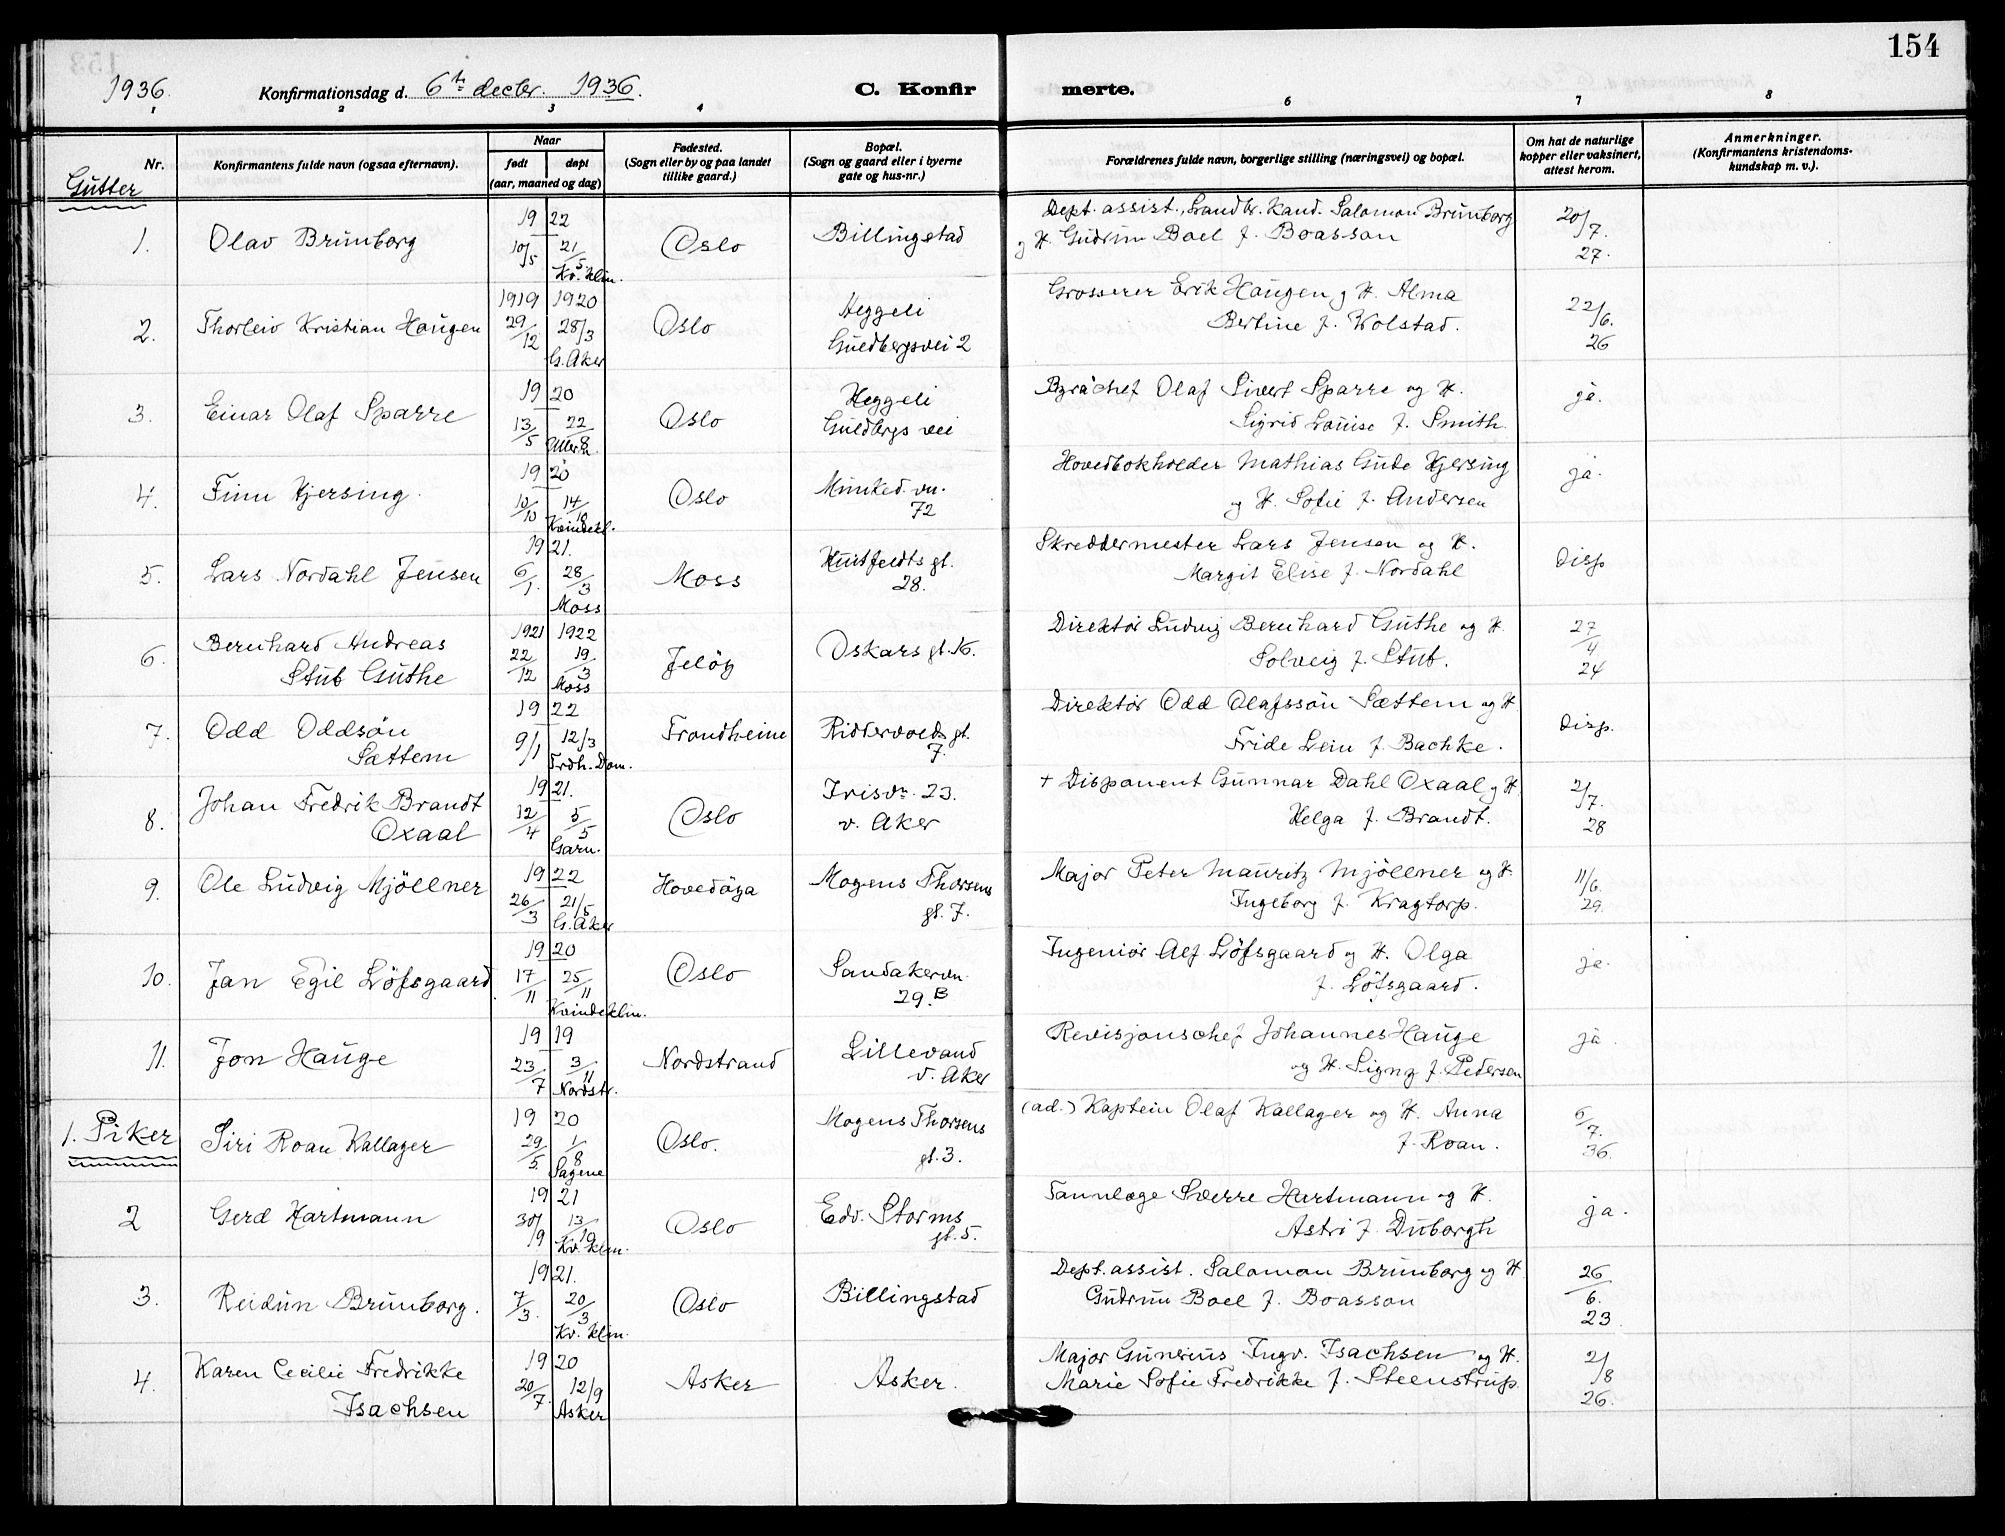 154
1936.
Konfirmationsdag d. 6te decbr. 1936.
C. Konfirmerte.
1 2 3 4 6 7 8
Nr.
Konfirmantens fulde navn (ogsaa efternavn).
Naar
født
døpt
(aar, maaned og dag)
Fødested.
(Sogn eller by og paa landet
tillike gaard.)
Bopæl.
(Sogn og gaard eller i byerne
gate og hus-nr.)
Forældrenes fulde navn, borgerlige stilling (næringsvei) og bopæl.
Om hat de naturlige
kopper eller vaksinert,
attest herom.
Anmerkninger.
(Konfirmantens kristendoms-
kundskap m. v.).
Gutter
1. Olav Brunborg 19 22 10/5 21/5 Kv. klin. Oslo Billingstad
Dept. assist., Landbr. Kand. Salomon Brunborg
og H. Gudrun Boel f. Boasson
20/7. 27.
2. Thorleiv Kristian Haugen 1919 29/12 1920 28/3 G. Aker Oslo Heggeli
Guldbergsvei 2
Grosserer Erik Haugen og H. Alma
Bertine f. Wolstad.
22/6. 26
3. Einar Olaf Sparre 19 20 13/5 22/8 Ullern. Oslo Heggeli
Guldbergs vei
Byråchef Olaf Sivert Sparre og H.
Sigrid Louise f. Smith.
ja.
4. Finn Hjersing. 19 20 10/10 14/10 Kvindekl. Oslo Munked. vn.
72
Hovedbokholder Mathias Gude Hjersing
og H. Sofie f. Andersen
ja.
5. Lars Nordahl Jensen 19 21. 6/1. 28/3 Moss Moss Huitfeldts gt.
28.
Skreddermester Lars Jensen og H.
Margit Elise f. Nordahl
Disp
6. Bernhard Andreas
Stub Guthe 1921 22/12 1922 19/3 Moss Jeløy Oskars gt. 16.
Direktør Ludvig Bernhard Guthe og H.
Solveig f. Stub.
27/4 24
7. Odd Oddsøn
Sættem 19 22 9/1 12/3 Trdh. Dom. Trondheim Riddervolds gt.
7.
Direktør Odd Olafssøn Sættem og H.
Fride Lein f. Bachke.
Disp.
8. Johan Fredrik Brandt
Oxaal 19 21. 12/4 5/5 Garn. Oslo Irisvn. 23.
v. Aker
+ Disponent Gunnar Dahl Oxaal og H.
Helga f. Brandt.
2/7. 28
9. Ole Ludvig Mjöllner 19 22 26/3 21/5 G. Aker Hovedøya Mogens Thorsens
gt. 7.
Major Peter Mauritz Mjöllner og H.
Ingeborg f. Kragtorp.
11/6. 29.
10. Jan Egil Löfsgaard 19 20 17/11 25/11 Kvindeklin. Oslo Sandakervn.
29.B
Ingeniør Alf Löfsgaard og H. Olga
f. Löfsgaard.
ja.
11. Jon Hauge 19 19 23/7 3/11 Nordstr. Nordstrand Lillevand
v. Aker
Revisjonschef Johannes Hauge
og H. Signy f. Pedersen
ja
1. Piker Siri Roan Kallager 19 20 29/5 1/8 Sagene Oslo. Mogens Thorsens
gt. 3.
(ad.) Kaptein Olaf Kallager og H. Anna
f. Roan.
6/7. 36.
2 Gerd Hartmann 19 21 30/9 13/10 Kv. klin. Oslo Edv. Storms
gt. 5.
Tannlæge Sverre Hartmann og H.
Astri f. Duborgh
ja.
3. Reidun Brunborg. 19 21. 7/3. 20/3 Kv. klin. Oslo Billingstad
Dept. assist. Salomon Brunborg og H
Gudrun Boel f. Boasson
26/6. 23
4. Karen Cecilie Fredrikke
Isachsen 19 20 20/7. 12/9 Asker Asker Asker.
Major Gunerius Ingv. Isachsen og H.
Marie Sofie Fredrikke f. Steenstrup.
2/8 26.